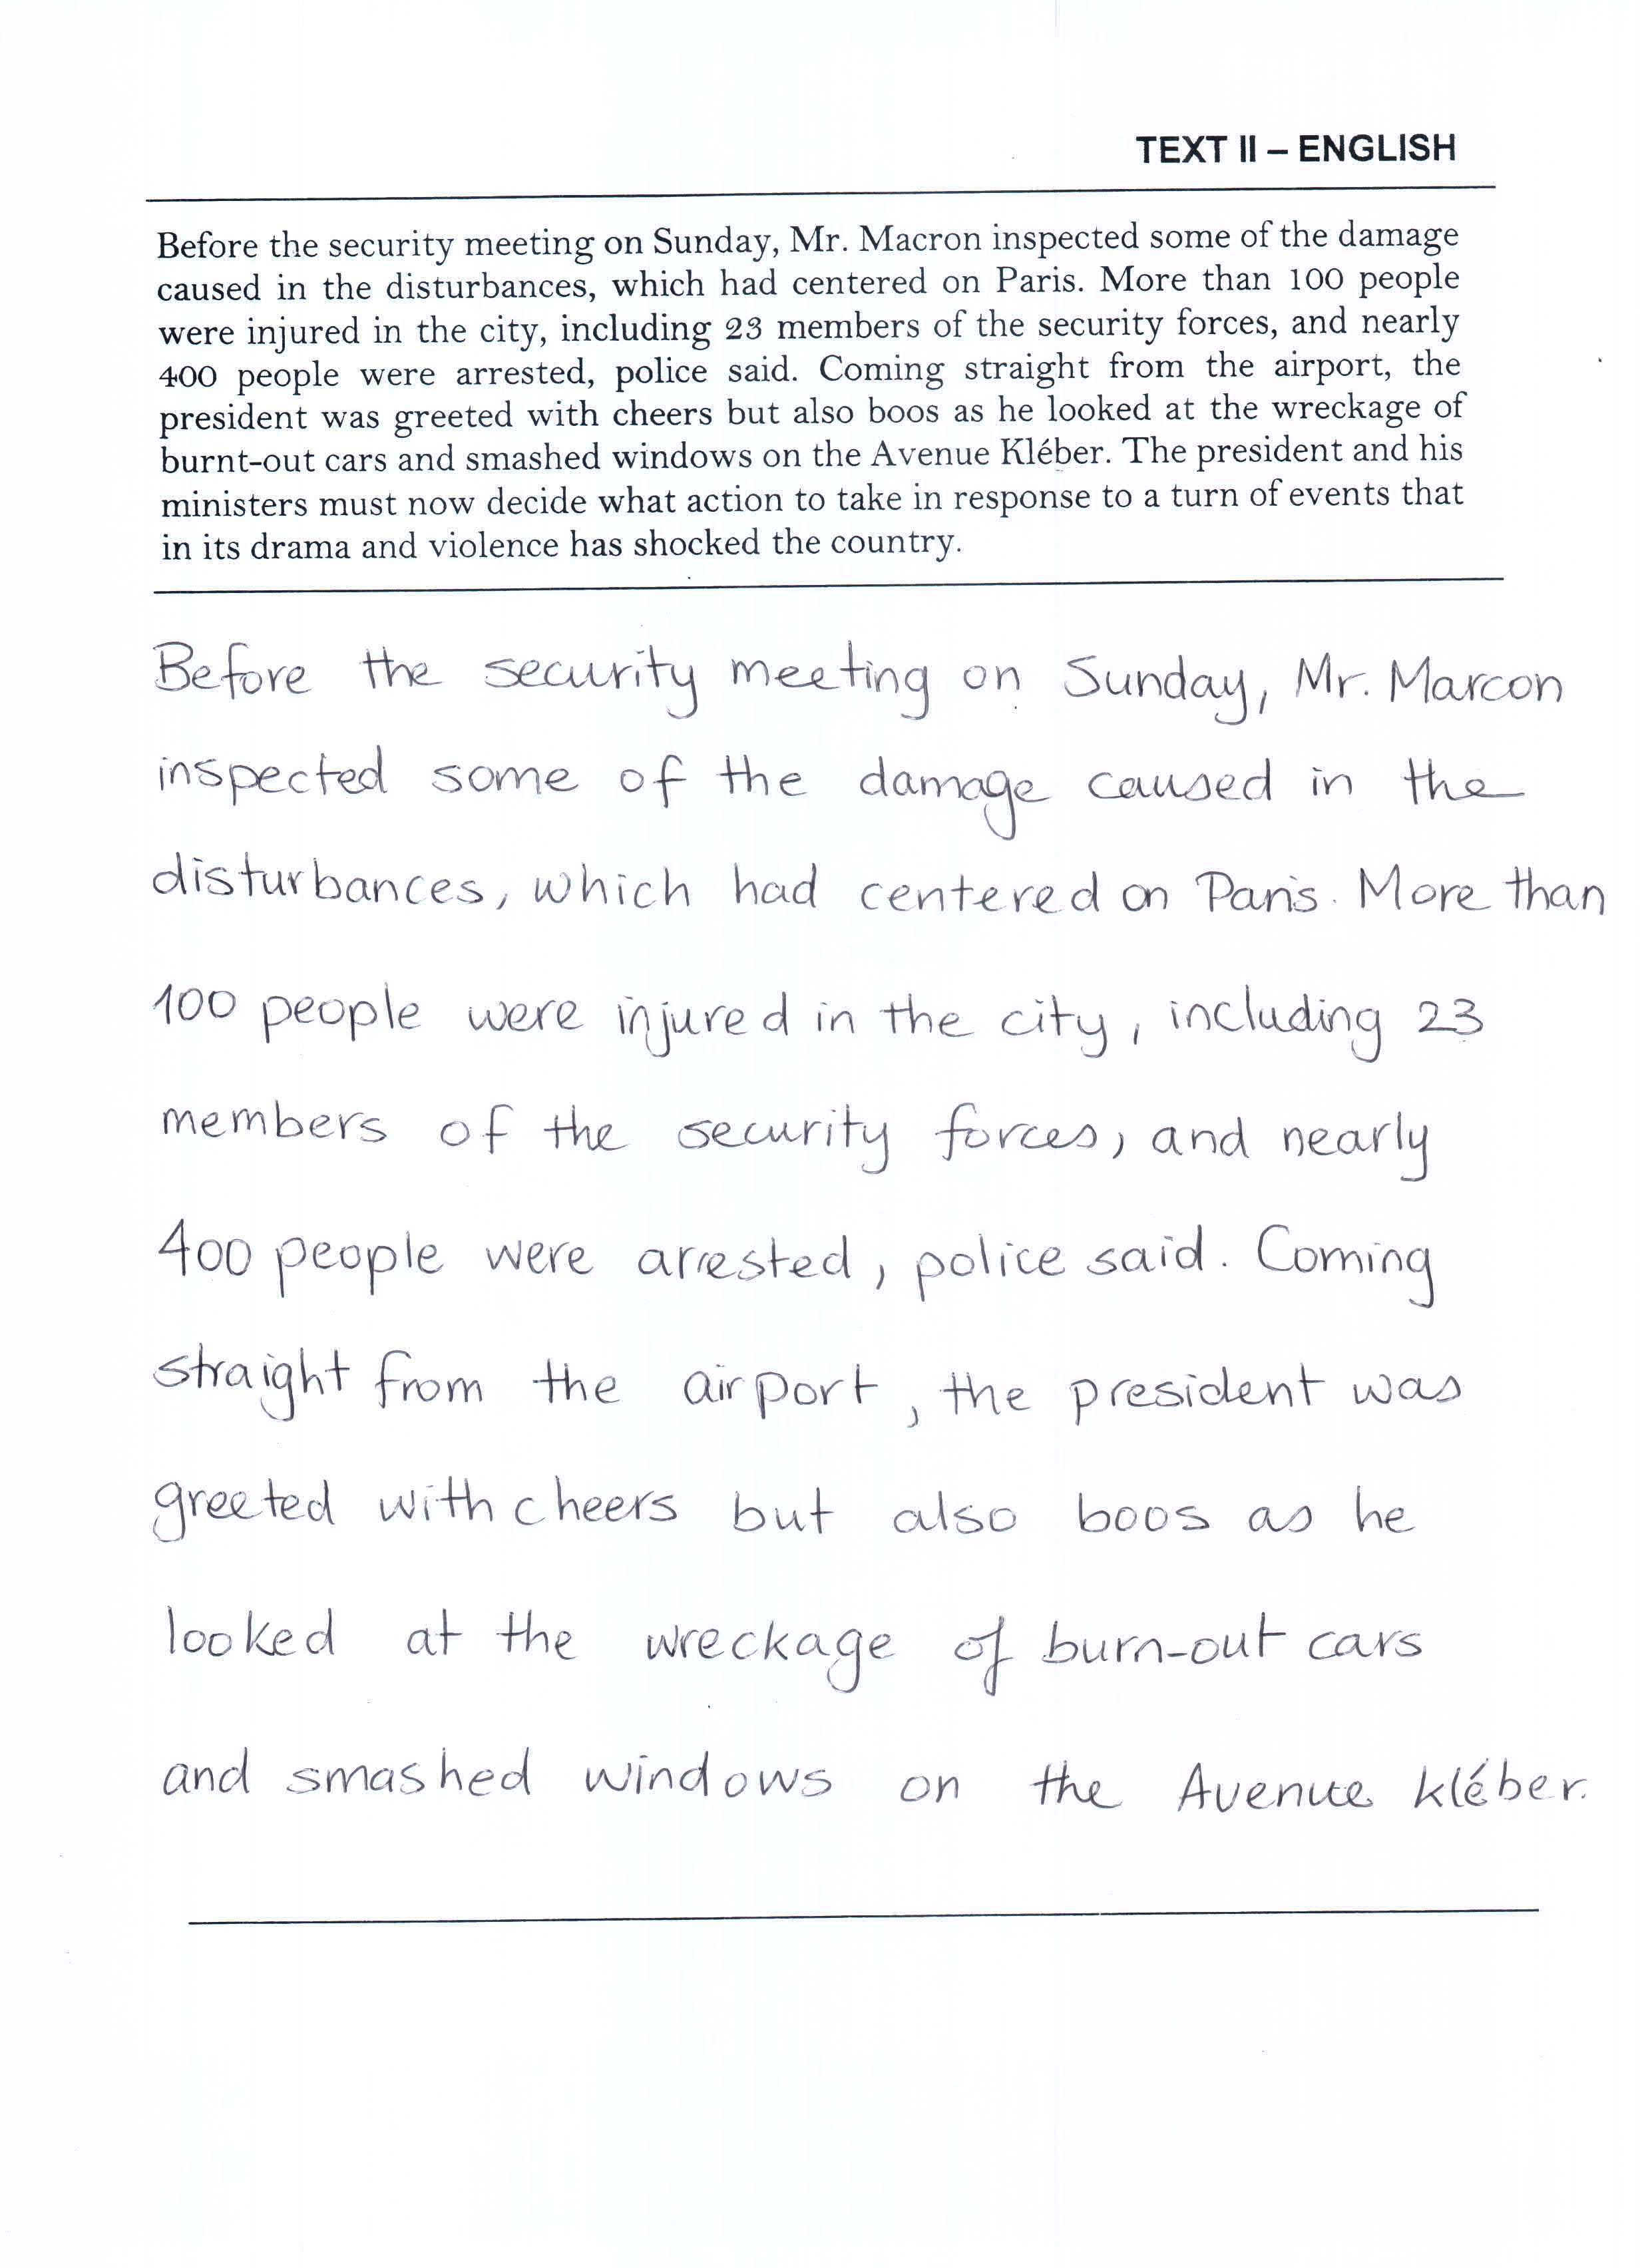 TEXT II – ENGLISH
Before the security meeting on Sunday, Mr. Macron inspected some of the damage
caused in the disturbances, which had centered on Paris. More than 100 people
were injured in the city, including 23 members of the security forces, and nearly
400 people were arrested, police said. Coming straight from the airport, the
president was greeted with cheers but also boos as he looked at the wreckage of
burnt-out cars and smashed windows on the Avenue Kléber. The president and his
ministers must now decide what action to take in response to a turn of events that
in its drama and violence has shocked the country.
Before the security meeting on Sunday, Mr. Marcon
inspected some of the damage caused in the
disturbances, which had centered on Paris. More than
100 people were injured in the city, including 23
members of the security forces, and nearly
400 people were arrested, police said. Coming
straight from the airport, the president was
greeted with cheers but also boos as he
looked at the wreckage of burn-out cars
and smashed windows on the Avenue kléber.